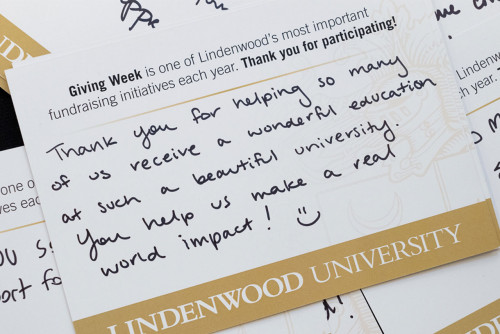 Giving Week is one of Lindenwood's most important
fundraising initiatives each year. Thank you for participating!
Thank you for helping so many
of us receive a wonderful education
at such a beautiful university.
You help us make a real
world impact! :)
LINDENWOOD UNIVERSITY
one o
ves eac
ort fo
Lindenw